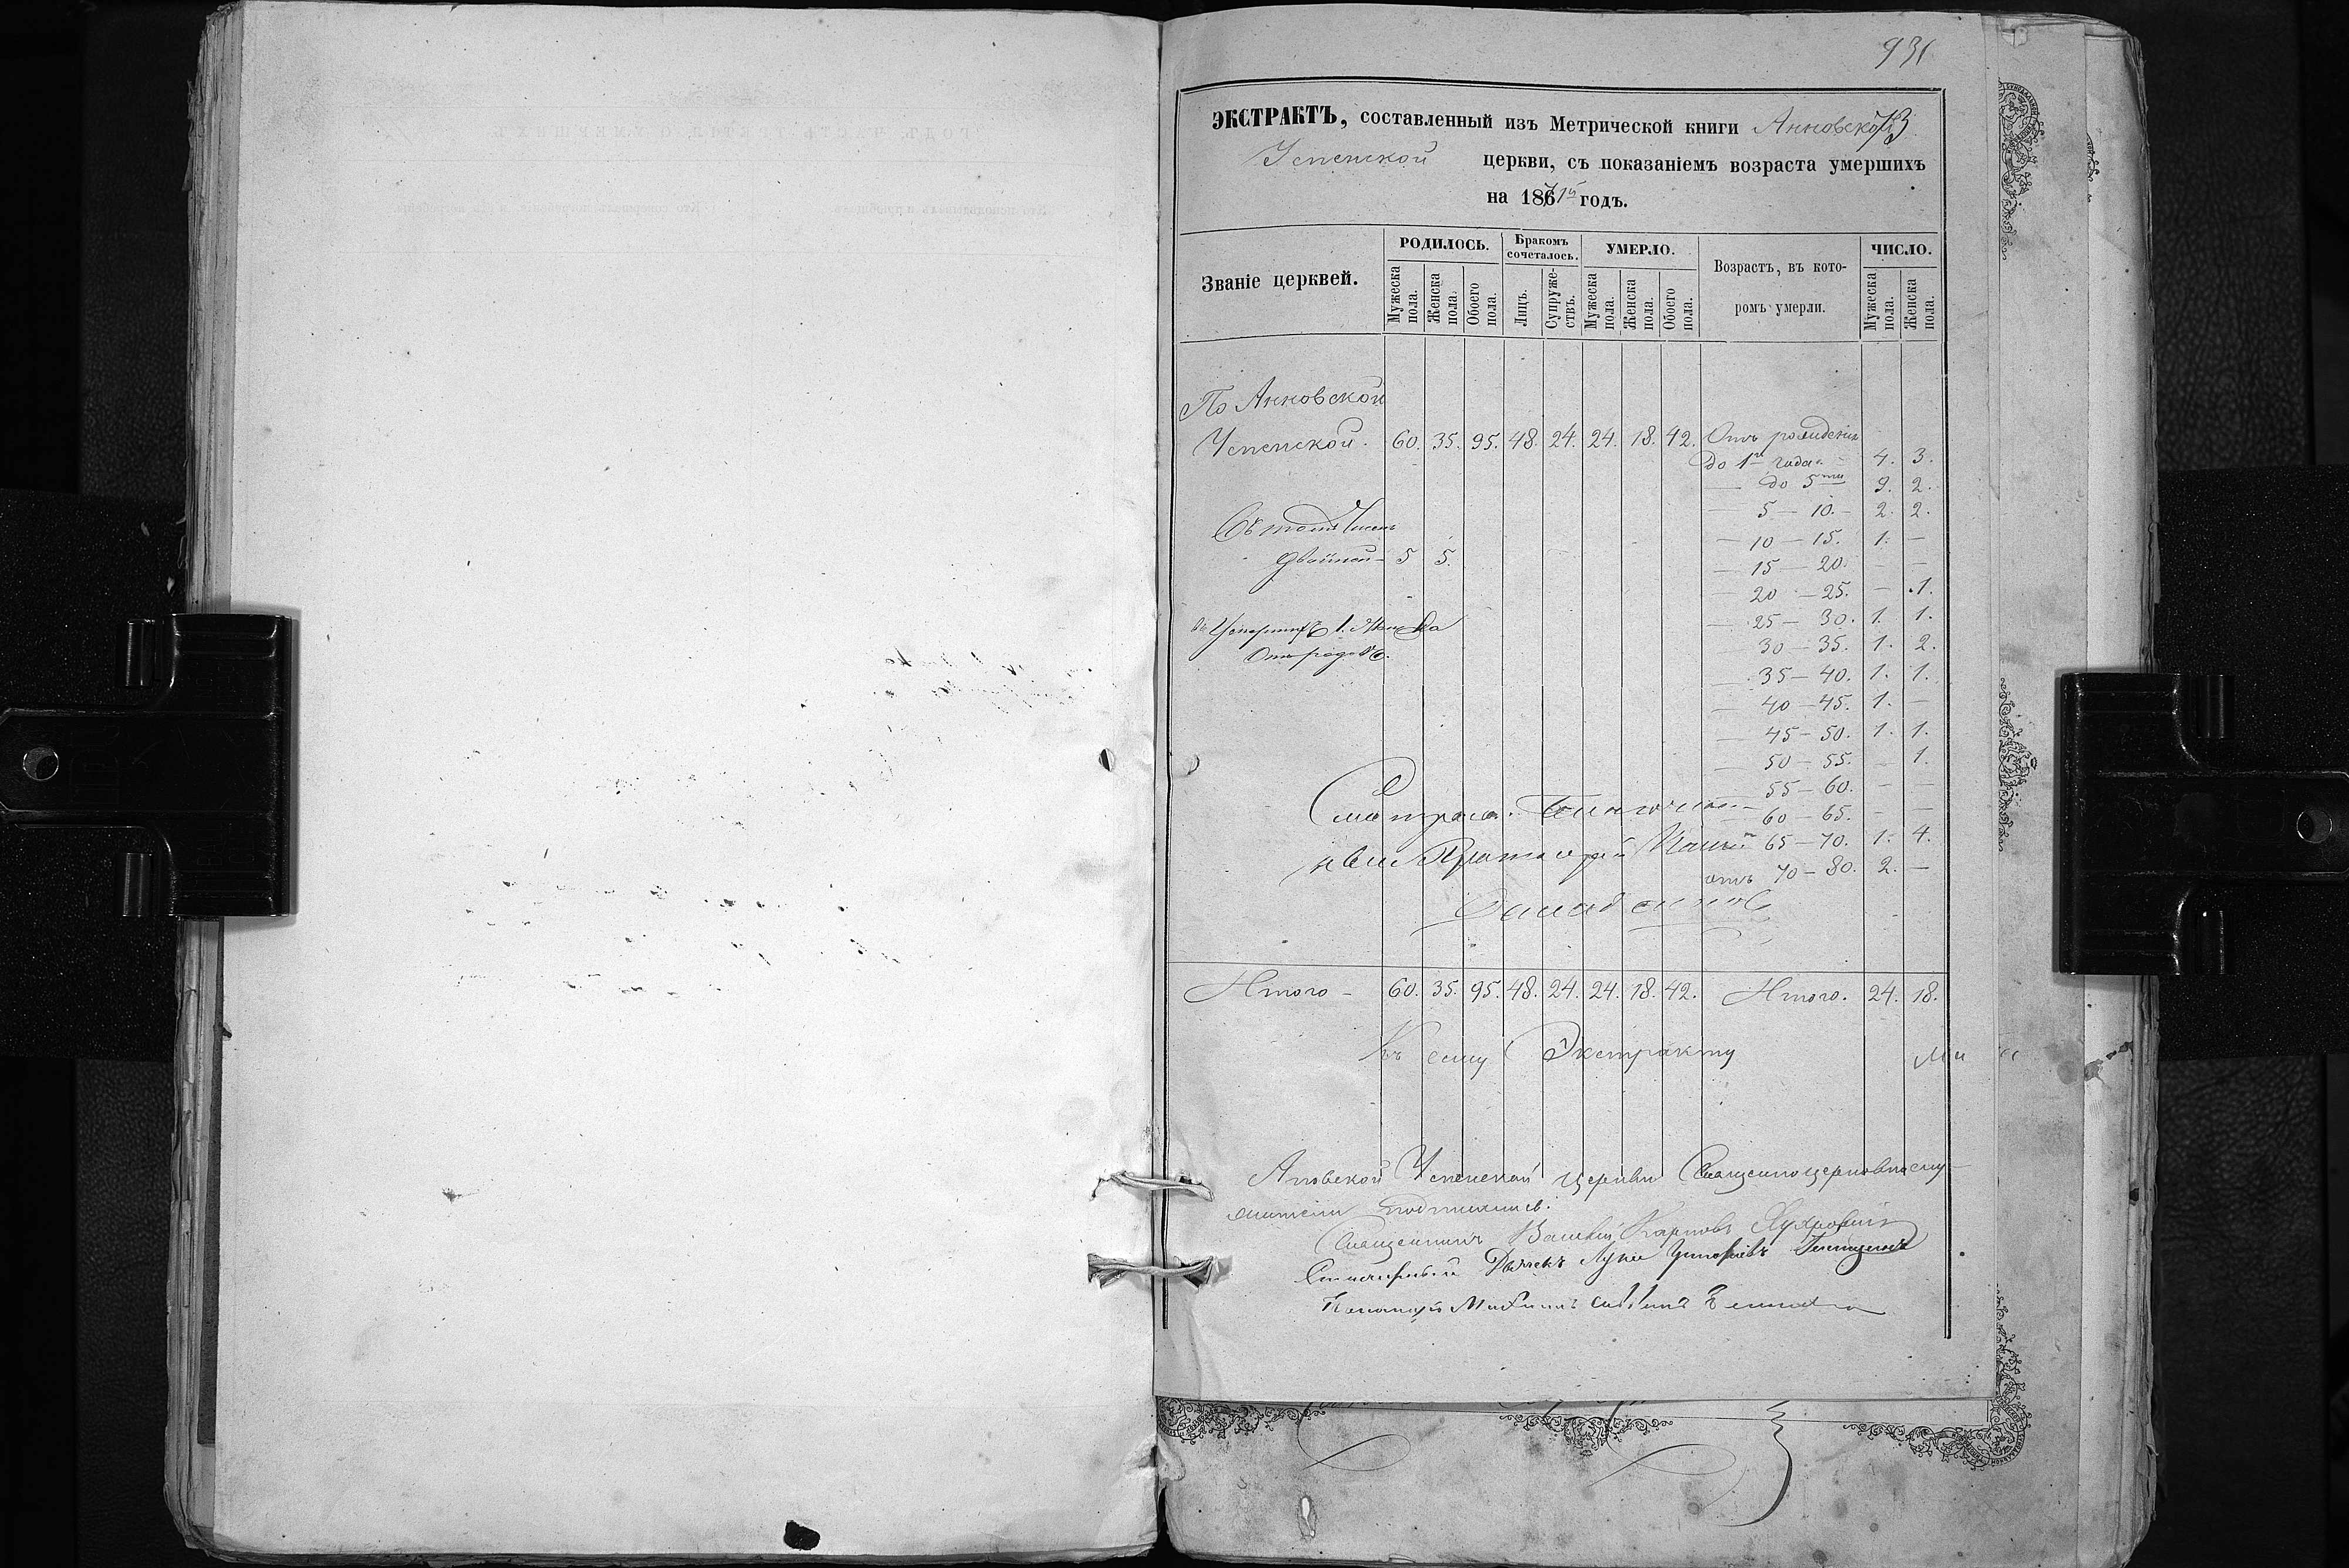 931
ЭКСТРАКТЪ, составленный изъ Метрической книги Анновской
73
Успенской церкви, съ показаніемъ возраста умершихъ
на 1871й годъ.
Званіе церквей.
РОДИЛОСЬ.
Бракомъ сочеталось.
УМЕРЛО.
Возрастъ, въ кото-
ромъ умерли.
ЧИСЛО.
Мужеска пола.
Женска пола.
Обоего пола.
Лицъ.
Супруже-ствъ.
Мужеска пола.
Женска пола.
Обоего пола.
Мужеска пола.
Женска пола.
По Анновской
Успенской. 60. 35. 95. 48. 24. 24. 18. 42. Отъ рожденія
до 1го года. 4. 3.
— до 5ти 9. 2.
— 5 — 10. — 2. 2.
— 10 — 15. 1. —
— 15 — 20. — —
— 20 — 25. — 1.
— 25 — 30. 1. 1.
— 30 — 35. 1. 2.
— 35 — 40. 1. 1.
— 40 — 45. 1. —
— 45 — 50. 1. 1.
— 50 — 55. — 1.
55 — 60. — —
60 — 65. — —
65 — 70. 1. 4.
отъ 70 — 80. 2. —
Въ томъ числѣ
двойней — 5 5.
1.
Смотрелъ
Итого — 60. 35. 95. 48. 24. 24. 18. 42. Итого. 24. 18.
Къ сему Экстракту
Успенской церкви Священноцерковнослу-
жители подписались.
Священникъ Василій Карповъ
Дьячекъ Лука
Пономарь